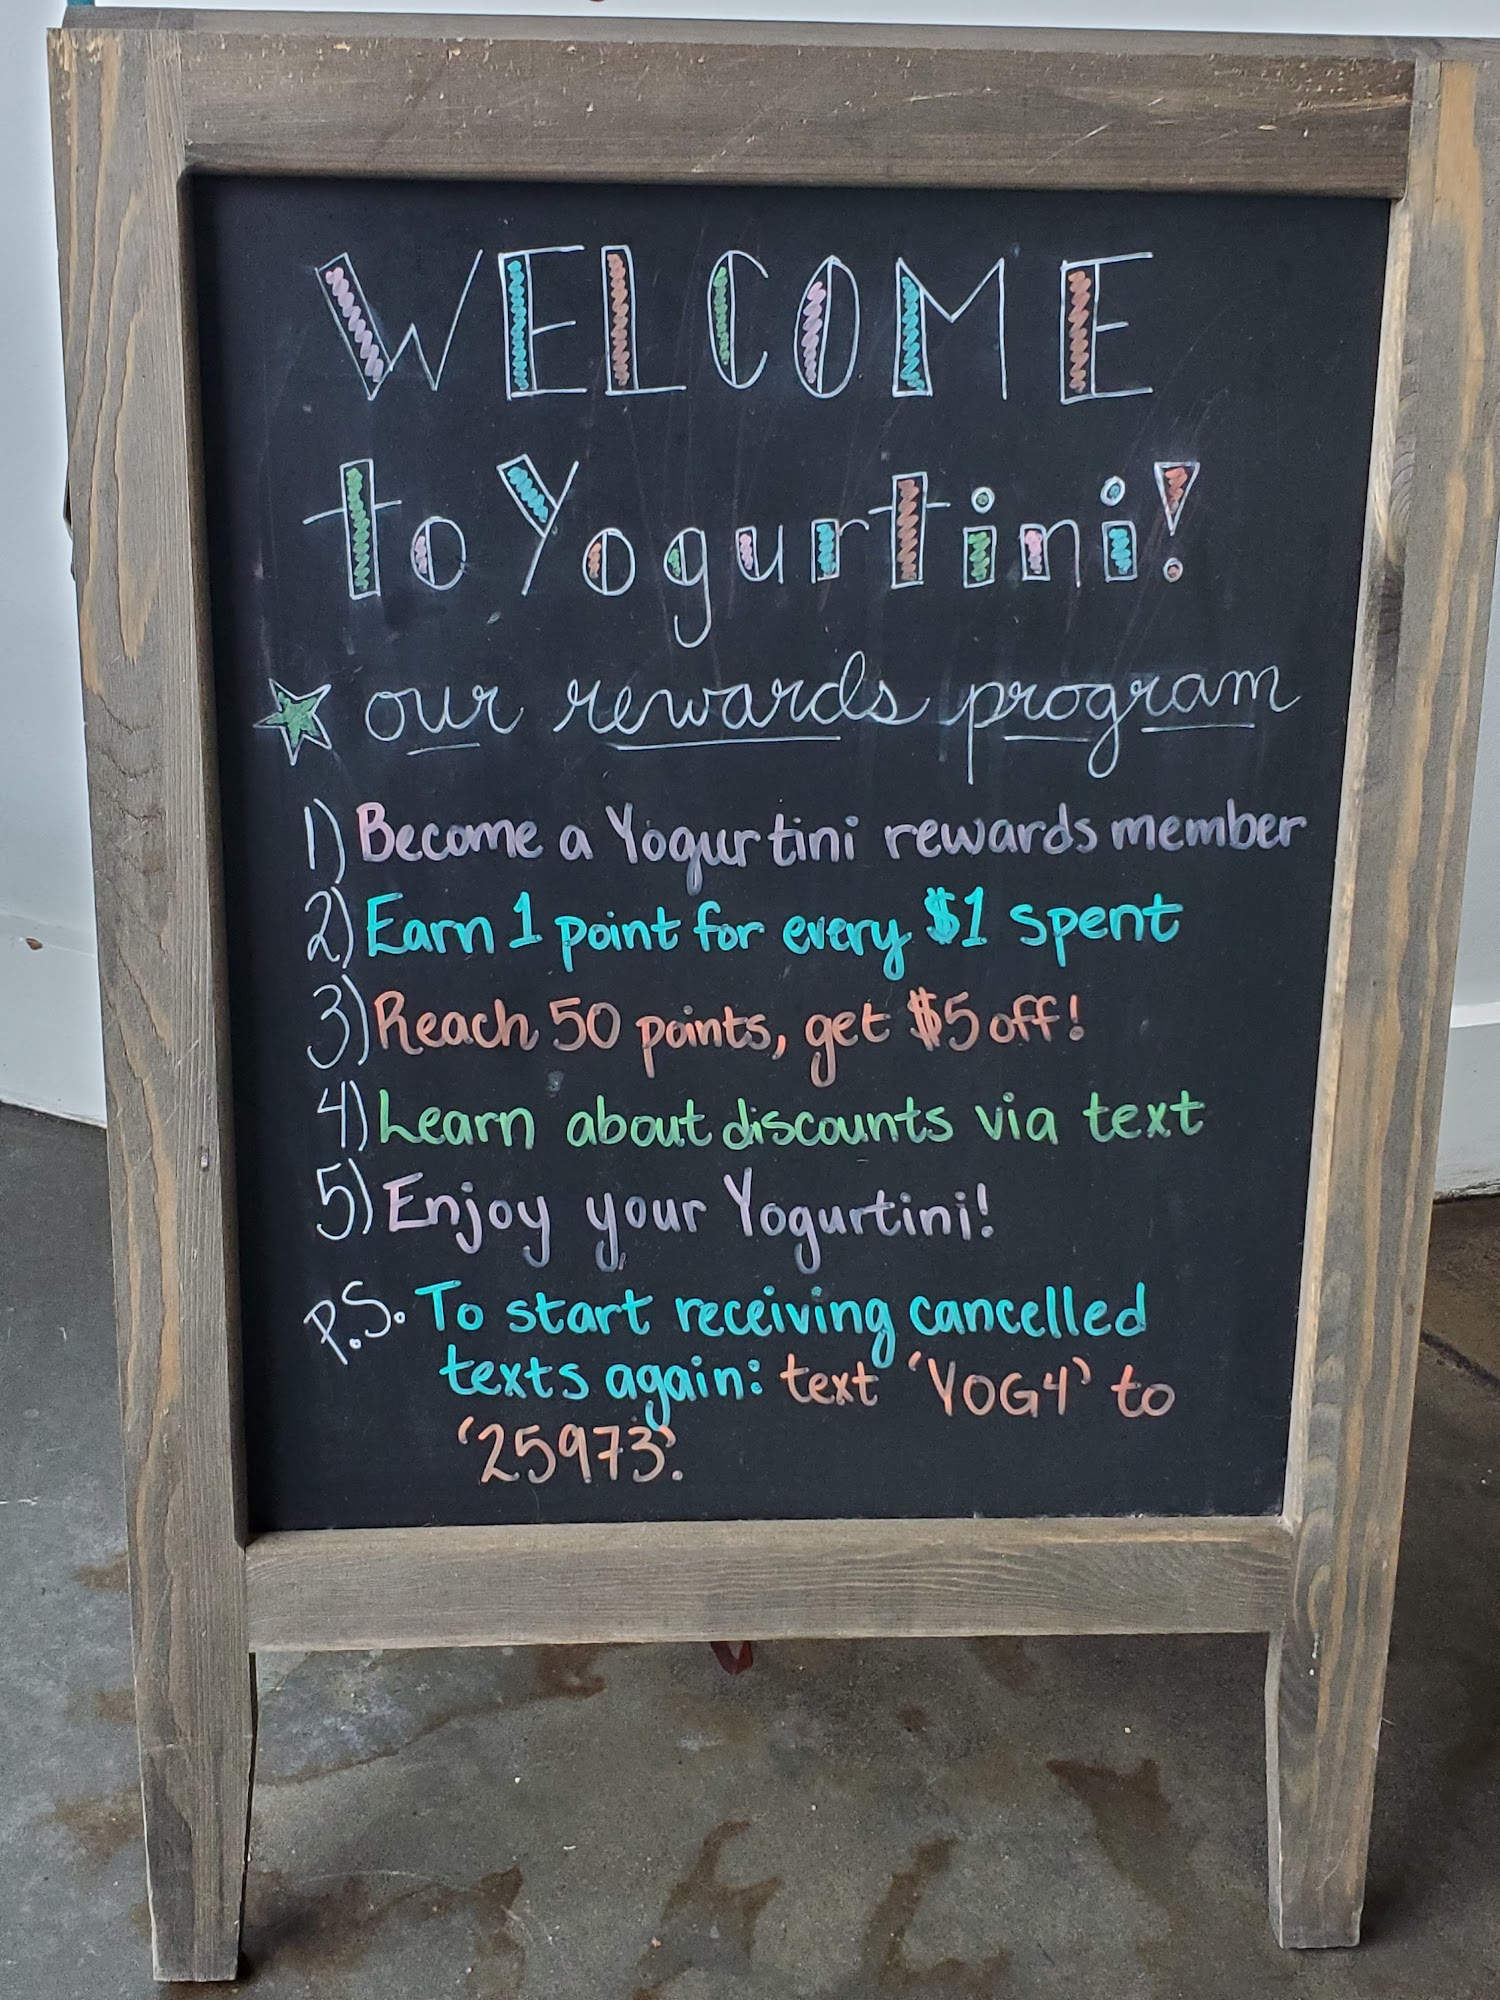 WELCOME
to Yogurtini!
our rewards program
1) Become a Yogurtini rewards member
2) Earn 1 point for every $1 spent
3) Reach 50 points, get $5 off!
4) Learn about discounts via text
5) Enjoy your Yogurtini!
P.S. To start receiving cancelled
texts again: text 'YOG4' to
'25973'.